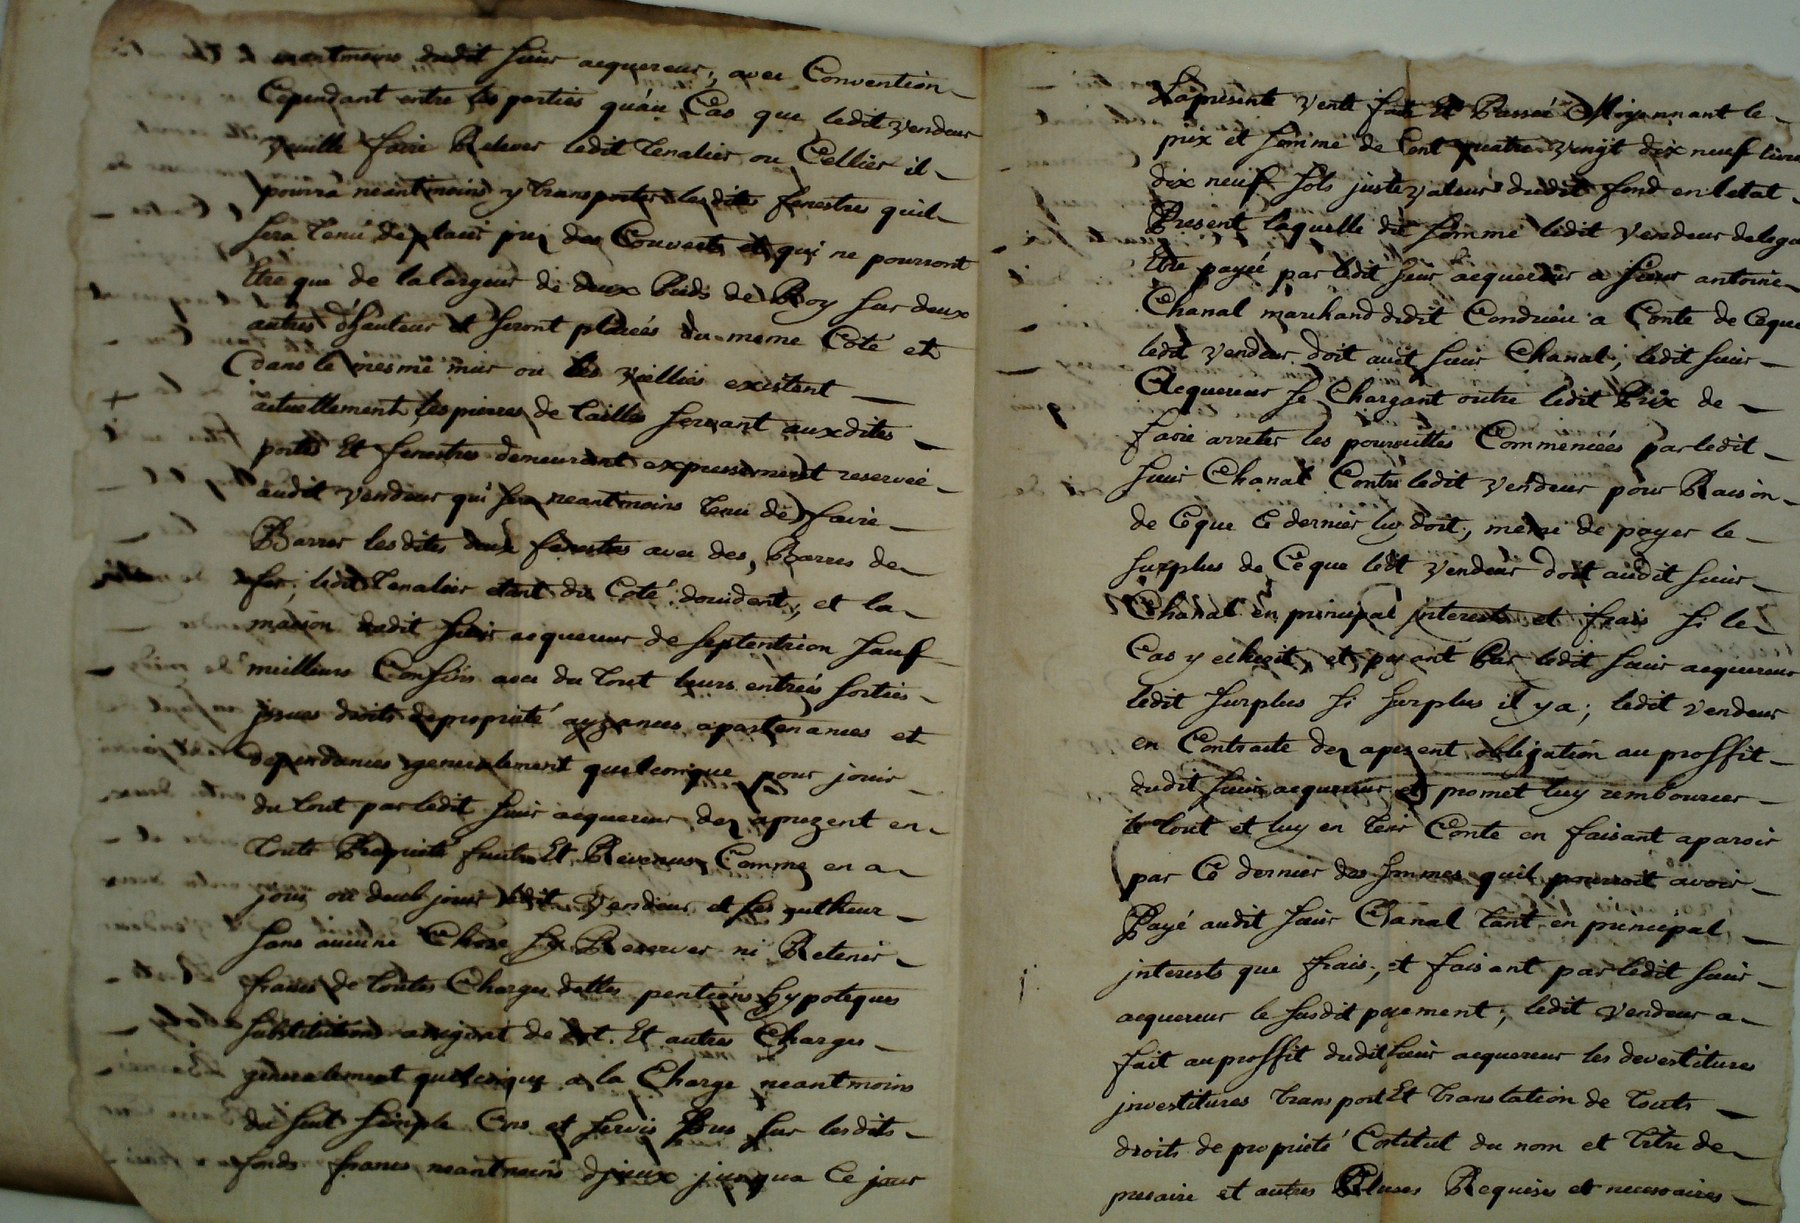 neantmoins dudit sieur acquereur, avec Convention
Cependant entre les parties qu'au Cas que ledit vendeur
veuille faire Relever ledit tenalier ou Cellier il
pourra neantmoins y transporter lesdites fenestres quil
sera tenu de placer prez des Couverts et qui ne pourront
Etre que de la largeur de deux Pieds de Roy sur deux
autres d'hauteur et seront placéés du meme Coté et
dans le mesme mur ou les vieillies existent
actuellement, les pierres de taillie servant auxdites
portes Et fenestres demeurant expressement reserveé
audit vendeur qui sera neantmoins tenu de faire
Barrer lesdites deux fenestres avec des Barres de
fer, ledit tenalier etant du Coté doccident, et la
maison dudit sieur acquereur de septentrion sauf
meillieurs Confins avec du tout leurs entréés sorties
issues droits de proprieté ayzances apartenances et
dependances generalement quelconque pour jouir
du tout par ledit sieur acquereur dez aprezent en
toute Proprieté fruits Et Revenus Comme en a
joui ou deub jouir ledit vendeur et ses autheur
sans aucune Chose sy Reserver ni Retenir
francs de toutes Charges dettes pentions hypoteques
substitutions assignat de dot Et autres Charges
generalement quelconque a la Charge neantmoins
du seul simple Cens et servis Dus sur lesdits
fonds francs neantmoins djceux jusqua Ce jour
La presente vente faite Et Passeé Moyennant le
prix et somme de Cent quatre vingt dix neuf livres
dix neuf sols juste valeur dudit fond en letat
Present laquelle dit somme ledit vendeur delegue
Etre payéé par ledit sieur acquereur a sieur antoine
Chanal marchand dudit Condrieu a Conte de Ceque
ledit vendeur doit audit sieur Chanal, ledit sieur
Acquereur se Chargant outre ledit Prix de
faire arreter les poursuittes Commencéés par ledit
sieur Chanal Contre ledit vendeur pour Raison
de Ceque Ce dernier luy doit, meme de payer le
surplus de Ceque ledt vendeur doit audit sieur
Chanal en principal jnterests et frais si le
Cas y echeoit, et payant Par ledit sieur acquereur
ledit surplus si surplus il ya; ledit vendeur
en Contracte dez aprezent obligation au proffit
dudit sieur acquereur et promet luy rembourcer
le tout et luy en tenir Conte en faisant aparoir
par Ce dernier des sommes quil pourroit avoir
Payé audit sieur Chanal tant en principal
jnterests que frais, et faisant par ledit sieur
acquereur le susdit payement; ledit vendeur a
fait au proffit dudit sieur acquereur les devestitures
jnvestitures transport Et translation de touts
droits de proprieté Constitut du nom et titre de
precaire et autres Clauses Requises et necessaires